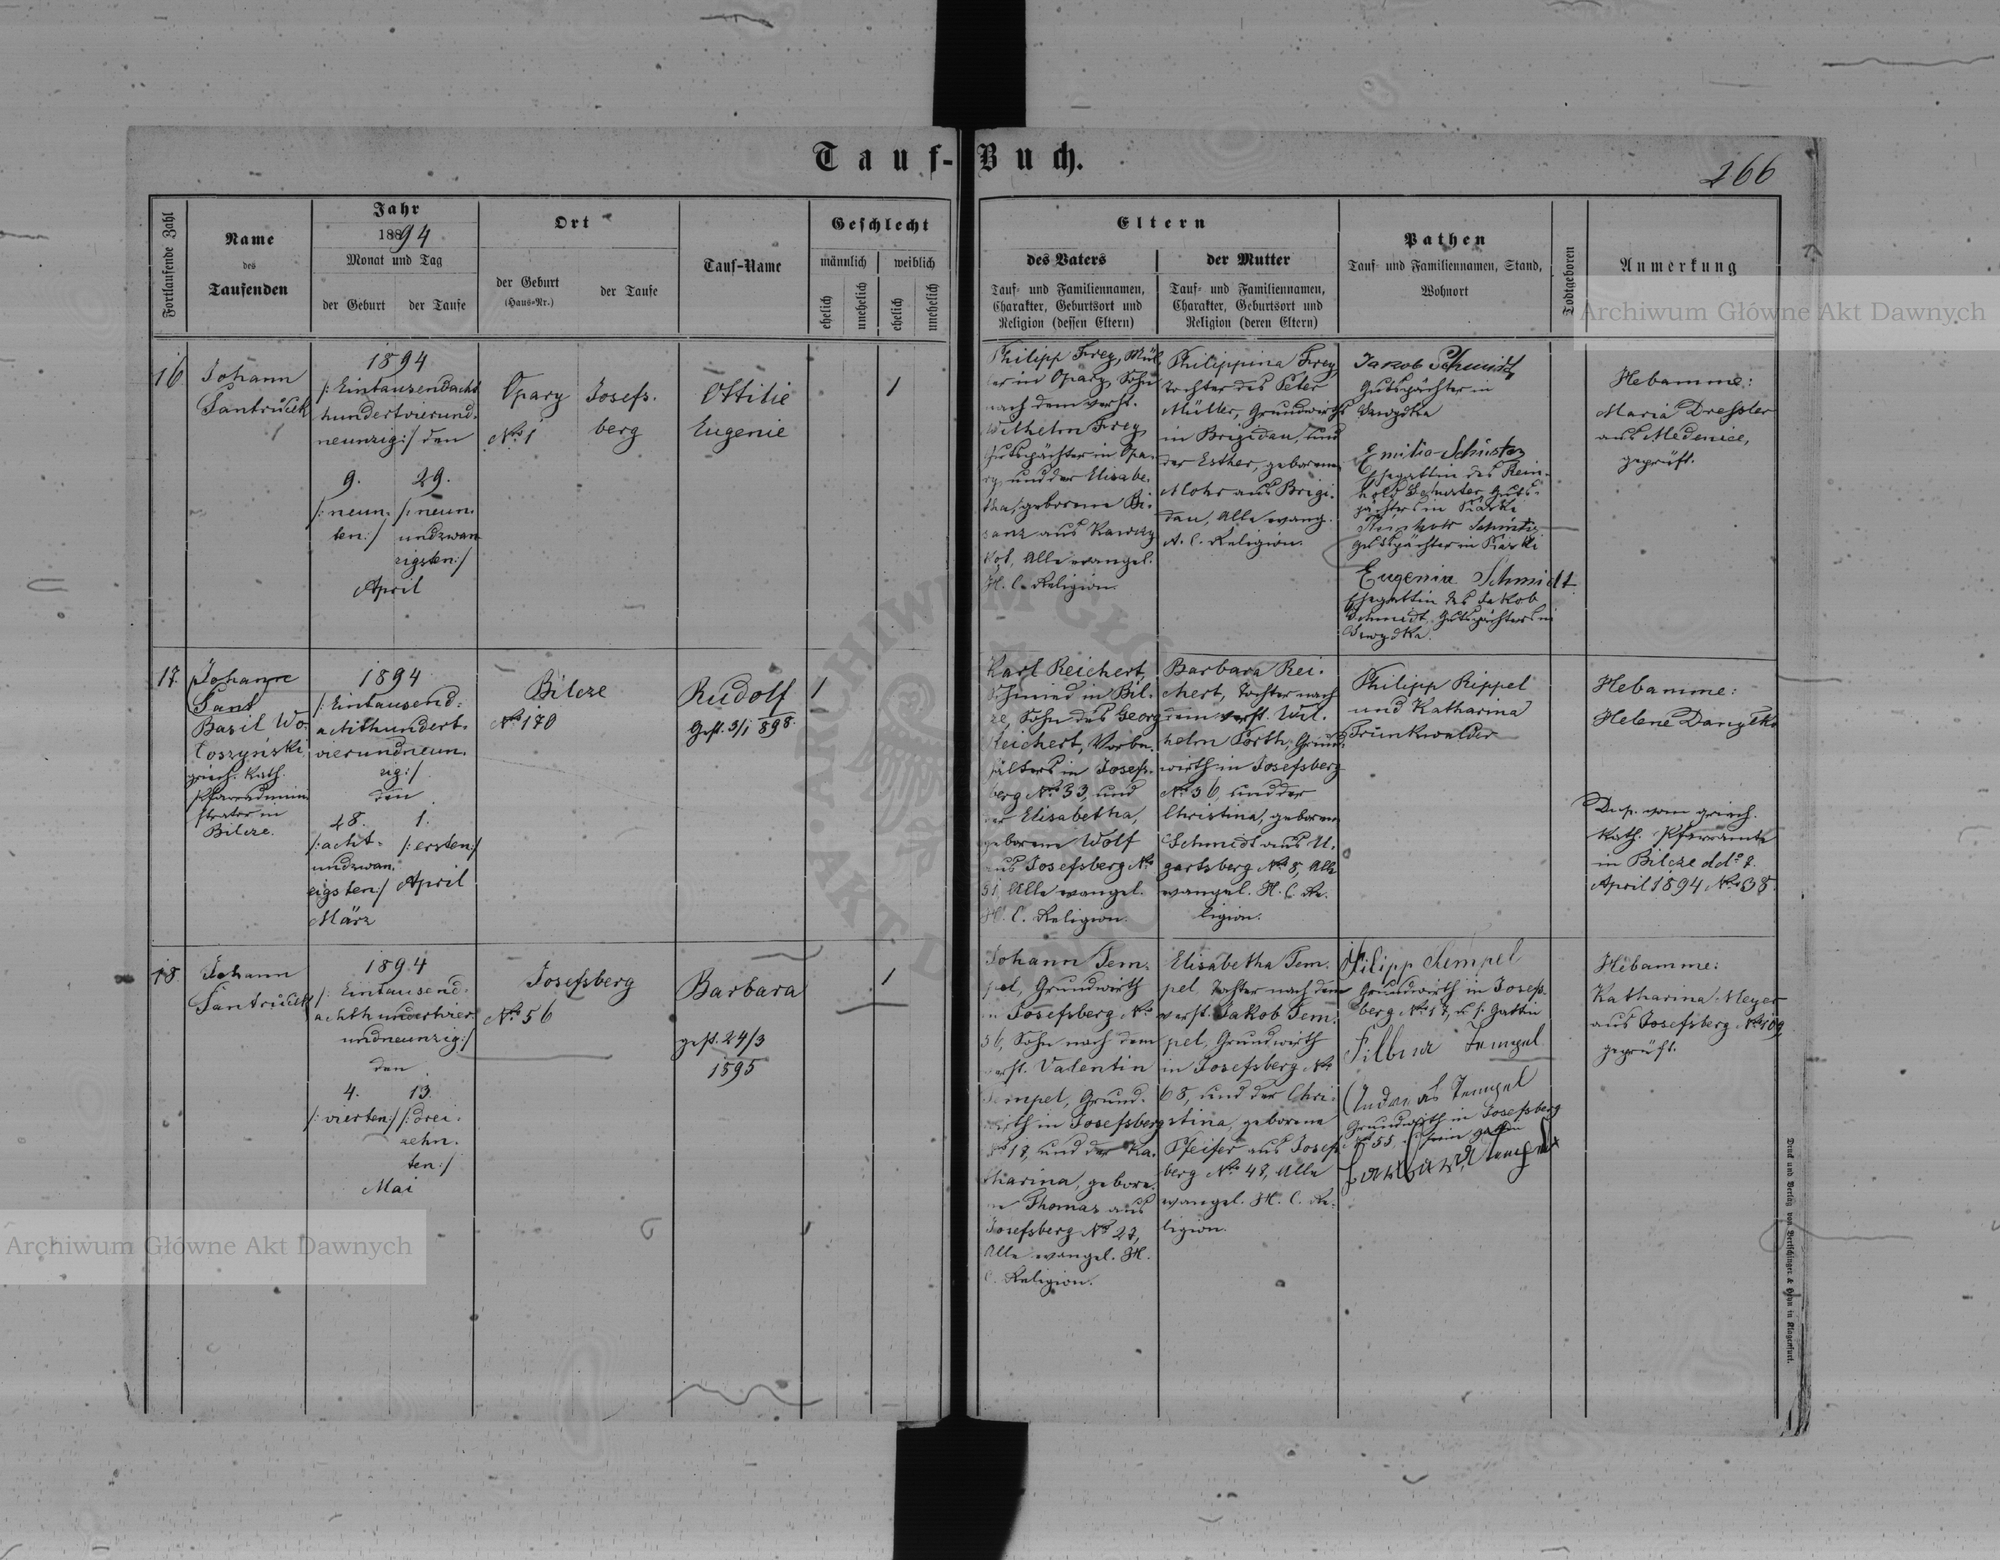 Tauf-Buch.
266
Fortlaufende Zahl
Name
des
Taufenden
Jahr
1894
Monat und Tag
der Geburt
der Taufe
Ort
der Geburt
(Haus-Nr.)
der Taufe
Tauf-Name
Geschlecht
männlich
weiblich
ehelich
unehelich
ehelich
unehelich
Eltern
des Vaters
Tauf- und Familiennamen,
Charakter, Geburtsort und
Religion (dessen Eltern)
der Mutter
Tauf- und Familiennamen,
Charakter, Geburtsort und
Religion (deren Eltern)
Pathen
Tauf- und Familiennamen, Stand,
Wohnort
Todtgeboren
Anmerkung
Archiwum Główne Akt Dawnych
16
Johann
Santrůček
1894
/: Eintausendacht
hundertvierund-
neunzig :/ den
9.
/: neun-
ten :/
29.
/: neun-
undzwan
zigsten :/
April
Opary
No 1
Josefs-
berg
Ottilie
Eugenie
1
Philipp Frey, Mül
ler in Opary, Sohn
nach dem verst.
Wilhelm Frey
Gutspächter in Opa-
ry, und der Elisabe-
tha, geborene Bi-
sanz aus
Alle evangel.
H. C. Religion.
Philippina Frey,
Tochter des Peter
Müller, Grundwirth
in Brigidau, und
der Esther, geborene
Mohr aus Brigi-
dau, Alle evang.
A. C. Religion.
Jakob Schmidt
Gutspächter in
Emilie Schuster
Ehegattin des Rein-
hold Schuster, Guts-
pächters in
Gutspächter in
Eugenia Schmidt
Ehegattin des Jakob
Schmidt, Gutspächters in
Hebamme:
Maria Dressler
aus Medenice,
geprüft.
17
Johann
Sant
Basil Wo-
loszyński
griech. kath.
Pfarradmini
strator in
Bilcze.
1894
/: Eintausend-
achthundert-
vierundneun-
zig :/
den
28.
/: acht-
undzwan-
zigsten :/
März
1.
/: ersten :/
April
Bilcze
No 170
Rudolf
Gest. 3/1 898.
1
Karl Reichert,
Schmied in Bil-
ze, Sohn des Georg
Reichert,
in Josefs-
berg No 33, und
der Elisabetha,
geborene Wolf
aus Josefsberg No
31, Alle evangel.
H. C. Religion.
Barbara Rei-
chert, Tochter nach
dem verst. Wil-
helm Porth, Grund-
wirth in Josefsberg
No 36, und der
Christina, geborene
Schmidt aus U-
gartsberg No 8, Alle
evangel. H. C. Re-
ligion.
Philipp Rippel
und Katharina
Trunkwalder
Hebamme:
Helene Danyłko
Dup. vom griech.
kath. Pfarramte
in Bilcze ddo 2.
April 1894 No 38.
18
Johann
Santrůček
1894
/: Eintausend-
achthundertvier
undneunzig :/
den
4.
/: vierten :/
13.
/: drei-
zehn-
ten :/
Mai
Josefsberg
No 56
Barbara
gest. 24/3
1895
1
Johann Tem-
pel, Grundwirth
in Josefsberg No
56, Sohn nach dem
verst. Valentin
Tempel, Grund-
wirth in Josefsberg
No 18, und der Ka-
tharina, gebore-
ne Thomas aus
Josefsberg No 23,
Alle evangel. H.
C. Religion.
Elisabetha Tem-
pel, Tochter nach dem
verst. Jakob Tem-
pel, Grundwirth
in Josefsberg No
68, und der Chri-
stina, geborene
Pfeifer aus Josefs-
berg No 48, Alle
evangel. H. C. Re-
ligion.
Filipp Tempel
Grundwirth in Josefs-
berg No 17, u. s. Gattin
Filbina Tempel
Andreas Tempel
Grundwirth in Josefsberg
No 55,
Barbara Tempel
Hebamme:
Katharina Meyer
aus Josefsberg No 109
geprüft.
Archiwum Główne Akt Dawnych
Druck und Verlag von Bertschinger & Heyn in Klagenfurt.